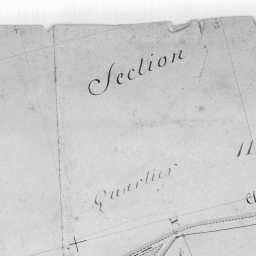 Section
Quartier